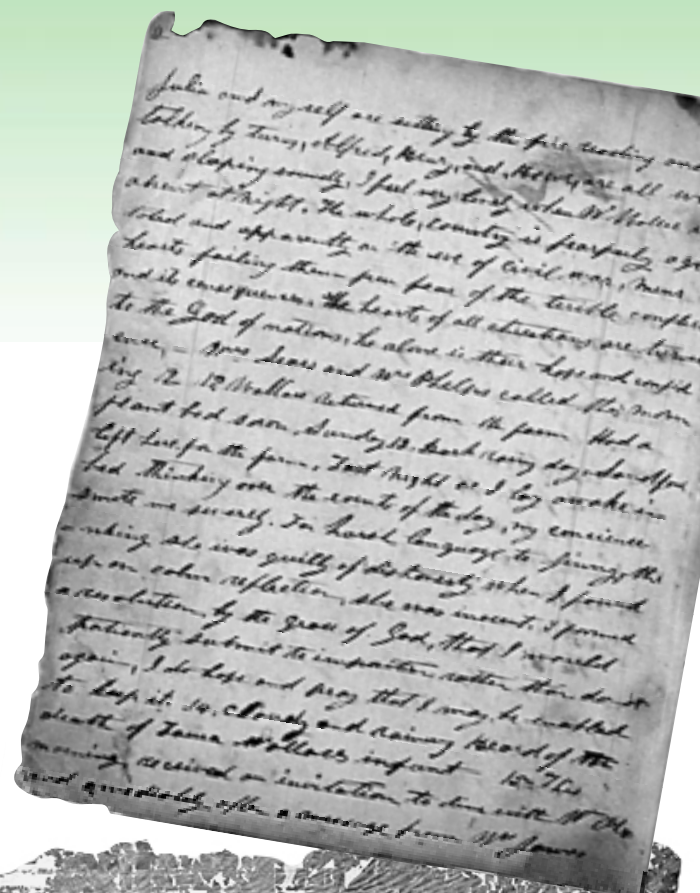 Julia and myself are sitting by the fire reading and
talking by turns, Alfred, Henry, and are all
and sleeping soundly. I feel very lonely when Wallace is
absent at Night. The whole, country is fearfully
and apparently on the eve of civil war, Mens
hearts failing them for fear of the terrible conflict
and its consequences. the hearts of all christians are
to the God of nations, he alone is their hope and confid
ence, - Mrs Sears and Mrs Phelps called this morn
ing. 12 Wallace returned from the farm Had a
plant bed sown, Sunday 13. dark rainy day
left here for the farm, Last Night as I lay awake in
bed thinking over the events of the day, my concience
smote me severely. For harsh language to
she was guilty of dishonesty when I found
upon calm reflection, she was inocent. I formed
a resolution, by the grace of God, that I would
patiently submit to imposition rather than do it
again, I do hope and pray that I may be enabled
to keep it. 14. Cloudy and rainy Heard of the
death of Wallaces infant 15 This
morning received an invitation to dine with
and after a message from Mr